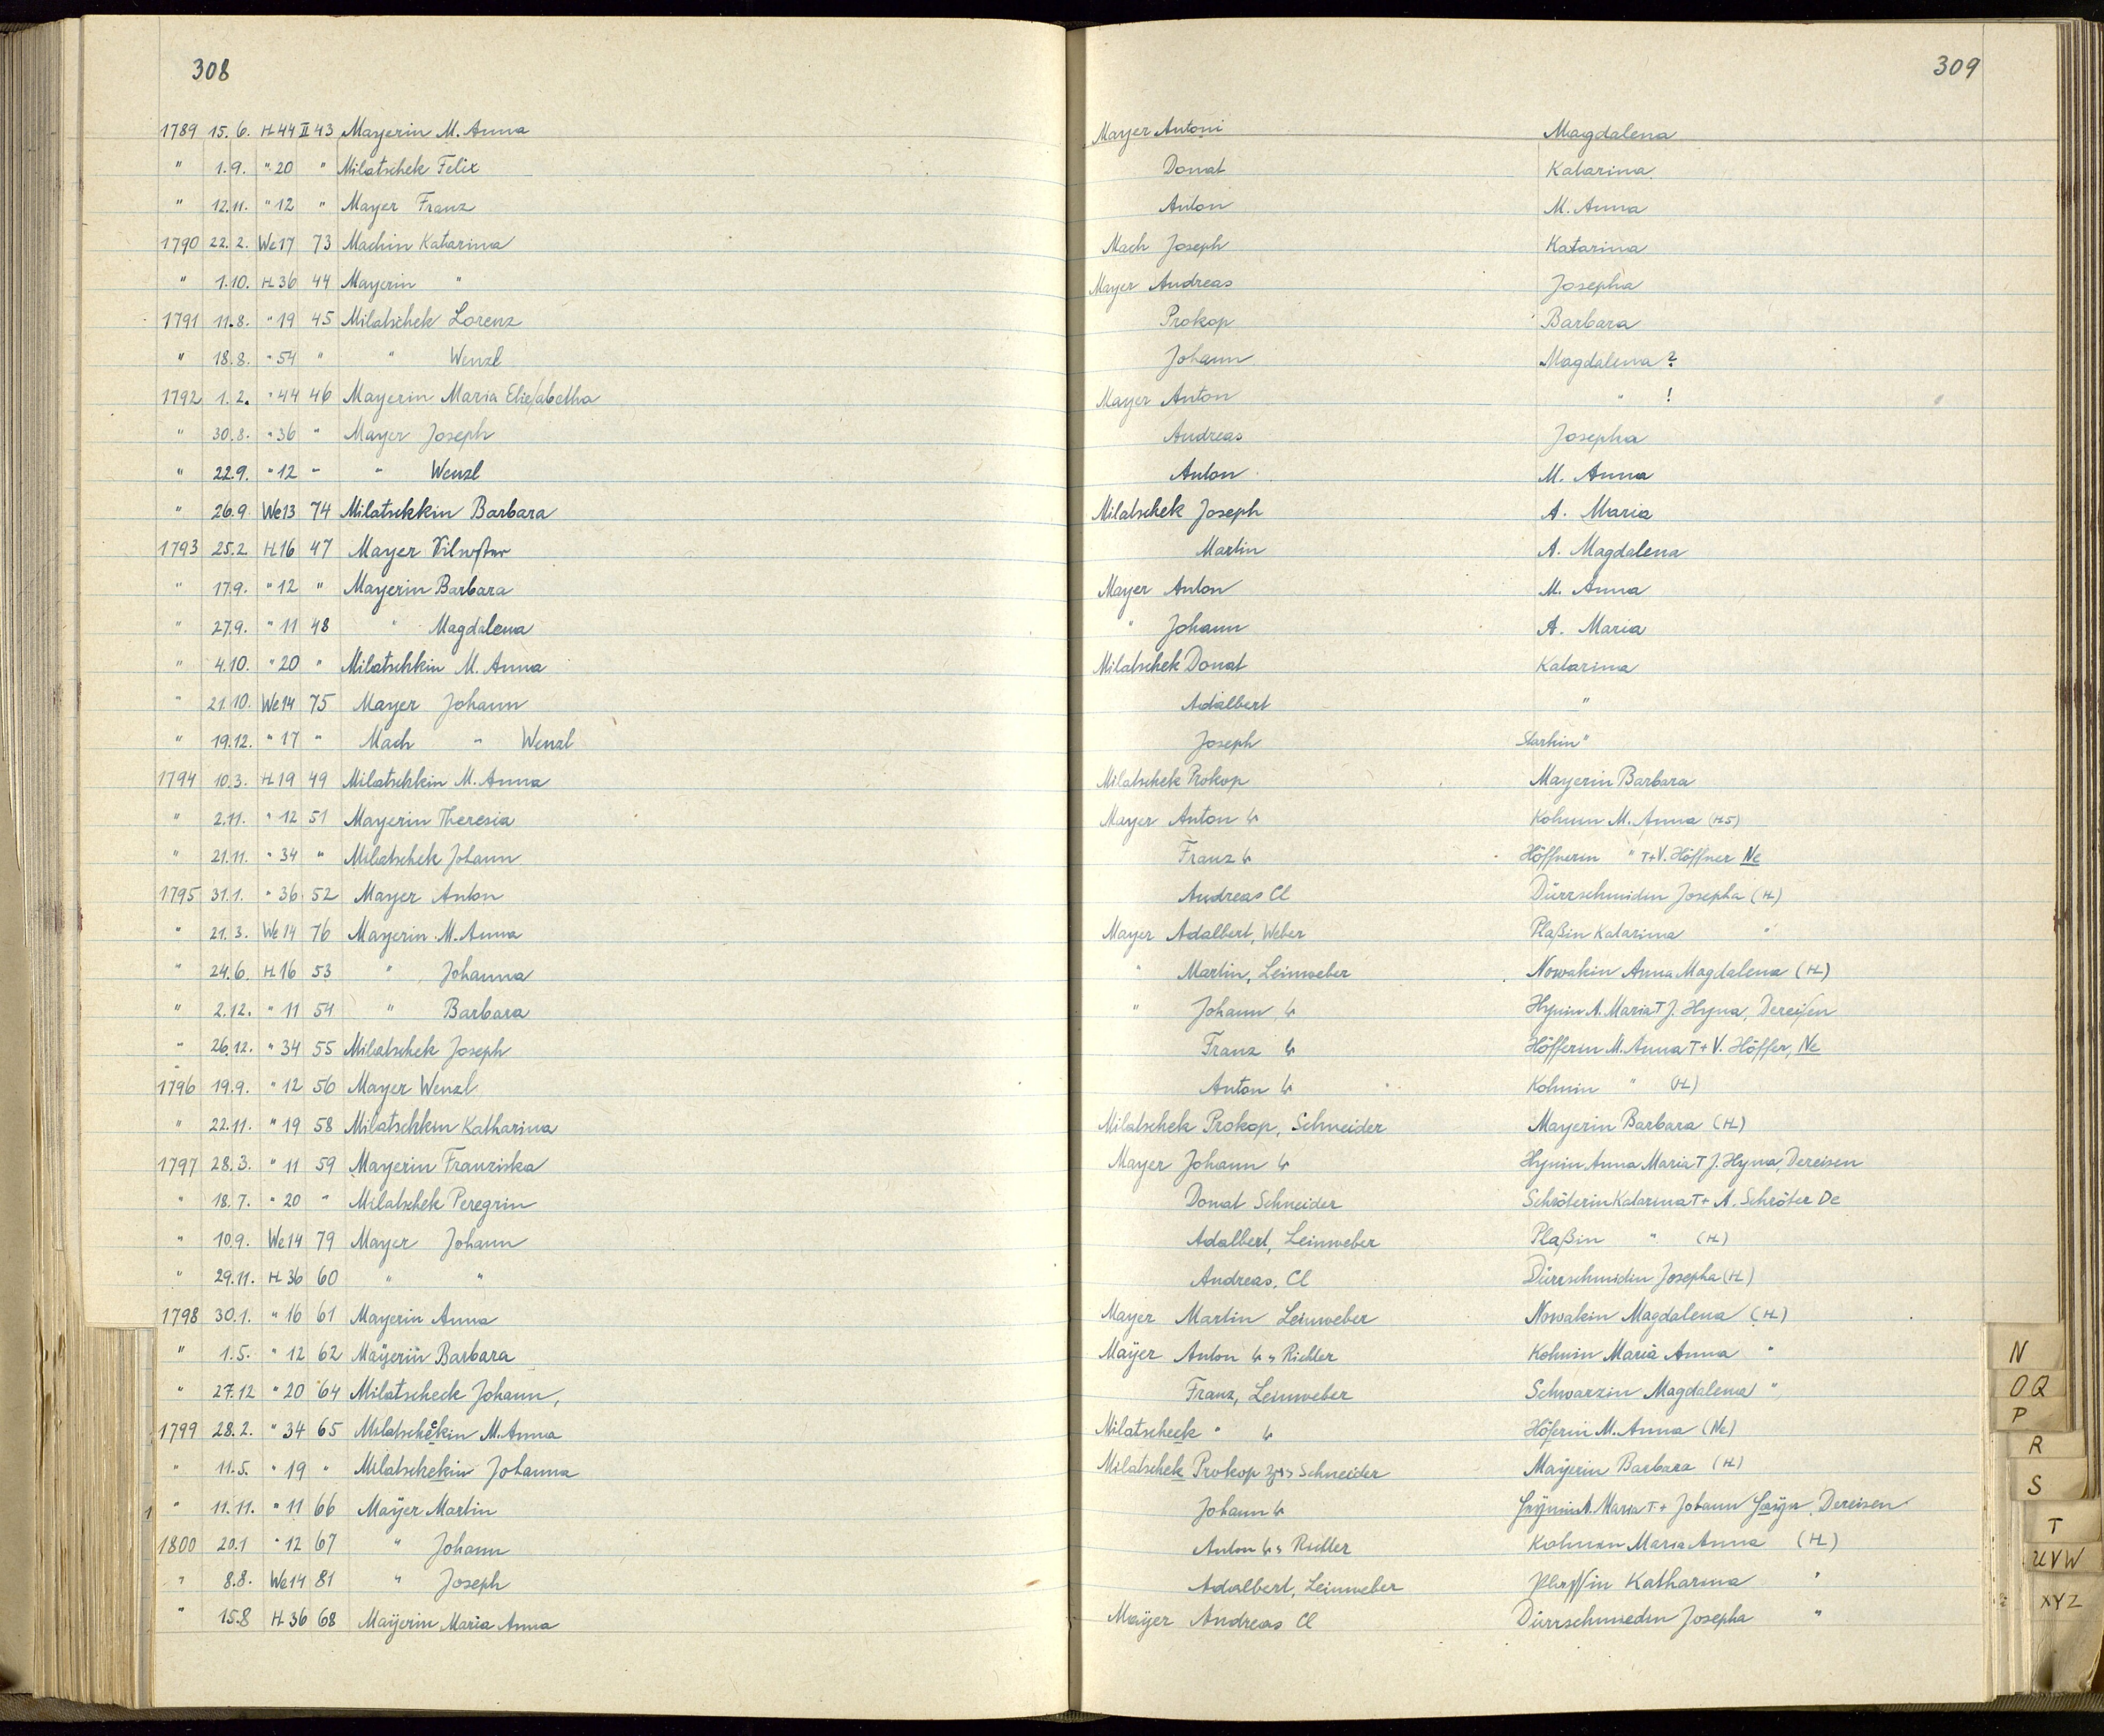 308
309
1789 15.6. H 44 II 43 Mayerin M. Anna Mayer Antoni Magdalena
" 1.9. " 20 " Milatschek Felix Donat Katarina
" 12.11. " 12 " Mayer Franz Anton M. Anna
1790 22.2. We 17 73 Machin Katarina Mach Joseph Katarina
" 1.10. H 36 44 Mayerin " Mayer Andreas Josepha
1791 11.8. " 19 45 Milatschek Lorenz Prokop Barbara
" 18.8. " 54 " " Wenzl Johann Magdalena ?
1792 1.2. " 44 46 Mayerin Maria Elieſabetha Mayer Anton " !
" 30.8. " 36 " Mayer Joseph Andreas Josepha
" 22.9. " 12 " " Wenzl Anton M. Anna
" 26.9 We 13 74 Milatschkin Barbara Milatschek Joseph A. Maria
1793 25.2 H 16 47 Mayer Martin A. Magdalena
" 17.9. " 12 " Mayerin Barbara Mayer Anton M. Anna
" 27.9. " 11 48 " Magdalena " Johann A. Maria
" 4.10. " 20 " Milatschkin M. Anna Milatschek Donat Katarina
" 21.10. We 14 75 Mayer Johann Adalbert "
" 19.12. " 17 " Mach " Wenzl Joseph Starkin "
1794 10.3. H 19 49 Milatschkin M. Anna Milatschek Prokop Mayerin Barbara
" 2.11. " 12 51 Mayerin Theresia Mayer Anton Kohnin M. Anna (H5)
" 21.11. " 34 " Milatschek Johann Franz Höffnerin " T+V. Höffner Ne
1795 31.1. " 36 52 Mayer Anton Andreas Cl Dürrschmidin Josepha (H)
" 21.3. We 14 76 Mayerin M. Anna Mayer Adalbert, Weber Plaßin Katarina "
" 24.6. H 16 53 " Johanna " Martin, Leinweber Nowakin Anna Magdalena (H)
" 2.12. " 11 54 " Barbara " Johann Hynin A. Maria T J. Hyna, Dereiſen
" 26.12. " 34 55 Milatschek Joseph Franz Höfferin M. Anna T+V. Höffer, Ne
1796 19.9. " 12 56 Mayer Wenzl Anton Kohnin " (H)
" 22.11. " 19 58 Milatschkin Katharina Milatschek Prokop, Schneider Mayerin Barbara (H)
1797 28.3. " 11 59 Mayerin Franziska Mayer Johann Hynin Anna Maria T J. Hyna, Dereisen
" 18.7. " 20 " Milatschek Peregrin Donat Schneider Schröterin Katarina T+ A. Schröter De
" 10.9. We 14 79 Mayer Johann Adalbert, Leinweber Plaßin " (H)
" 29.11. H 36 60 " " Andreas, Cl Dürrschmidin Josepha (H)
1798 30.1. " 16 61 Mayerin Anna Mayer Martin Leinweber Nowakin Magdalena (H)
" 1.5. " 12 62 Maÿerin Barbara Maÿer Anton Richter Kohnin Maria Anna "
" 27.12 " 20 64 Milatscheck Johann, Franz, Leinweber Schwarzin Magdalena "
1799 28.2. " 34 65 Milatscheckin M. Anna Milatscheck " Höferin M. Anna (Ne)
" 11.5. " 19 " Milatschekin Johanna Milatschek Prokop Schneider Maÿerin Barbara (H)
1 " 11.11. " 11 66 Maÿer Martin Johann A. Maria T+ Johann Dereisen
1800 20.1 " 12 67 " Johann Anton Richter Kohnin Maria Anna (H)
" 8.8. We 14 81 " Joseph Adalbert, Leinweber Plaſſin Katharina "
" 15.8 H 36 68 Maÿerin Maria Anna Maÿer Andreas Cl Dürrschmiedin Josepha "
N
OQ
P
R
S
T
UVW
XYZ